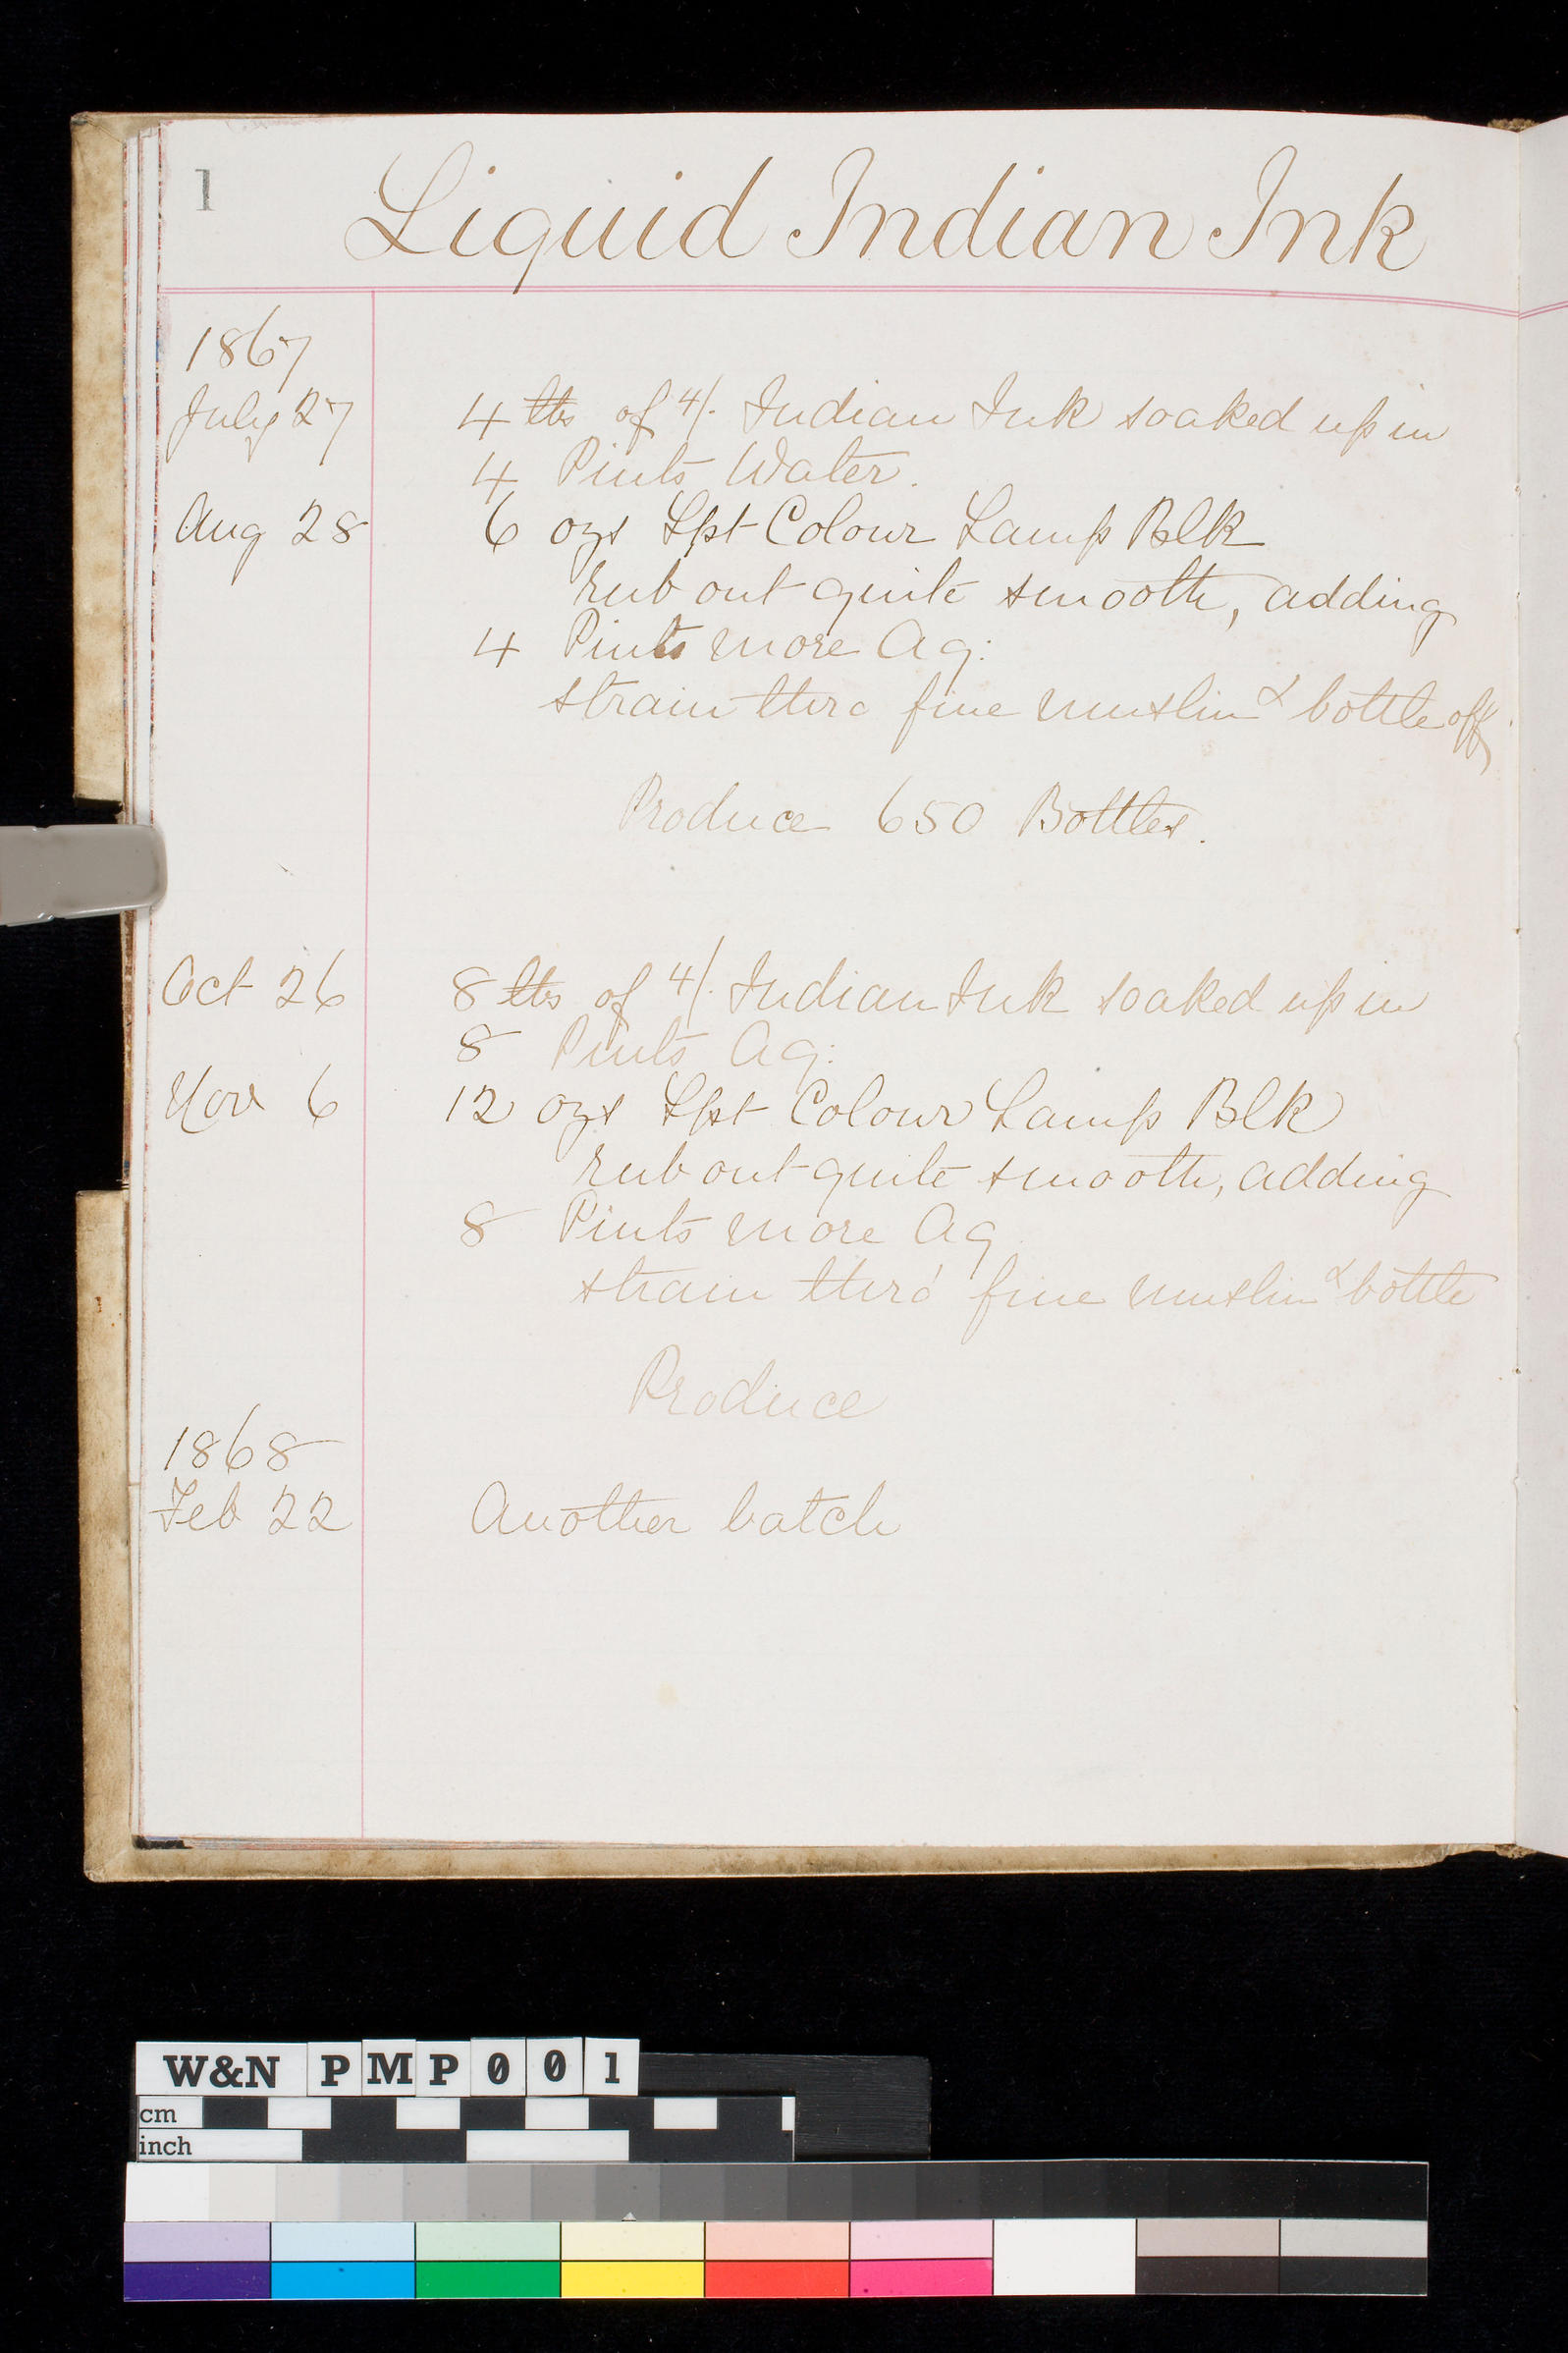 1
Liquid Indian Ink
1867
July 27 4 lbs of 4/. Indian Ink soaked up in
4 Pints Water.
Aug 28 6 ozs Lpt Colour Lamp Blk
rub out quite smooth, adding
4 Pints more Aq:
strain thro fine muslin & bottle off
Produce 650 Bottles.
Oct 26 8 lbs of 4/. Indian Ink soaked up in
8 Pints Aq:
Nov 6 12 ozs Lpt Colour Lamp Blk
rub out quite smooth, adding
8 Pints more Aq
strain thro' fine muslin & bottle
Produce
1868
Feb 22 Another batch
W&N PMP001
cm
inch